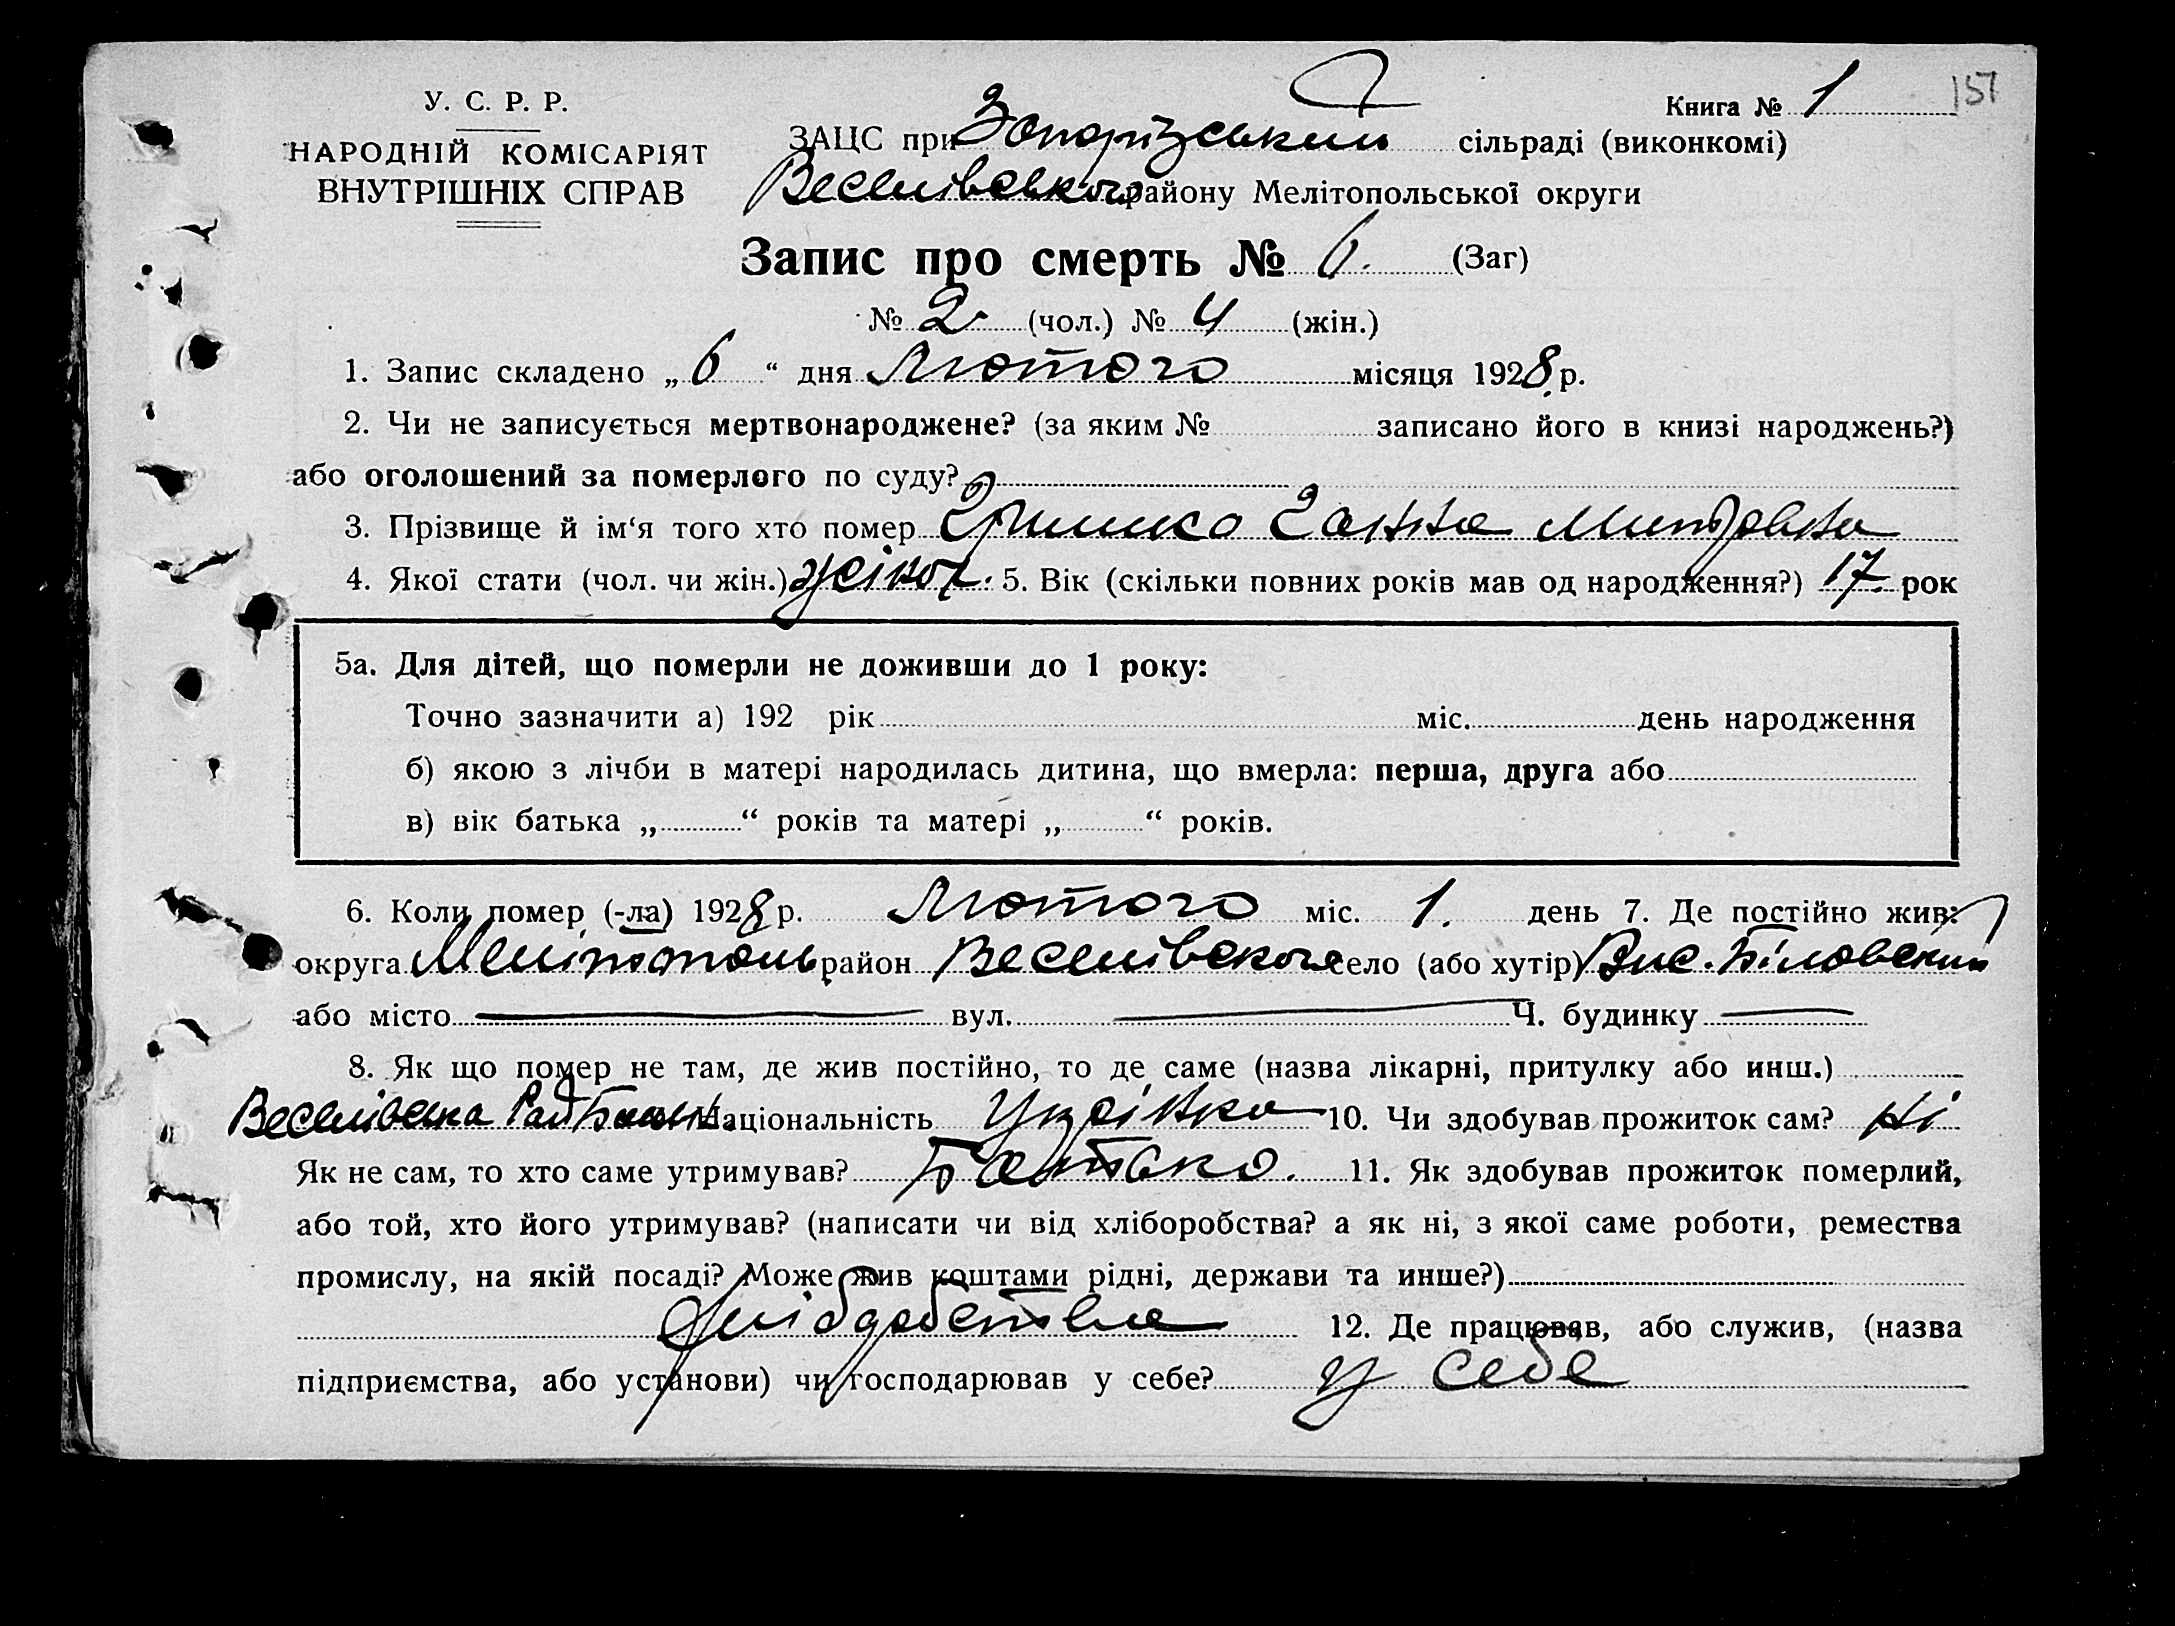 У. С. Р. Р.
НАРОДНІЙ КОМІСАРІЯТ
ВНУТРІШНІХ СПРАВ
Книга № 1 157
ЗАЦС при Запорізський сільраді (виконкомі)
Веселівського району Мелітопольської округи
Запис про смерть № 6. (Заг)
№ 2 (чол.) № 4 (жін.)
1. Запис складено „ 6 “ дня Лютого місяця 1928 р.
2. Чи не записується мертвонароджене? (за яким № записано його в книзі народжень?)
або оголошений за померлого по суду?
3. Прізвище й ім‘я того хто помер Гришко Ганна
4. Якої стати (чол. чи жін.) жіноч. 5. Вік (скільки повних років мав од народження?) 17 рок
5а. Для дітей, що померли не доживши до 1 року:
Точно зазначити а) 192 рік міс. день народження
б) якою з лічби в матері народилась дитина, що вмерла: перша, друга або
в) вік батька „ “ років та матері „ “ років.
6. Коли помер (-ла) 1928 р. Лютого міс. 1. день 7. Де постійно жив:
округа Мелітополь район Веселівского село (або хутір) Вис. Біловський
або місто вул. Ч. будинку
8. Як що помер не там, де жив постійно, то де саме (назва лікарні, притулку або инш.)
Веселівська Національність Украінка 10. Чи здобував прожиток сам? Ні
Як не сам, то хто саме утримував? Батько. 11. Як здобував прожиток померлий,
або той, хто його утримував? (написати чи від хліборобства? а як ні, з якої саме роботи, ремества
промислу, на якій посаді? Може жив коштами рідні, держави та инше?)
хліборобства 12. Де працював, або служив, (назва
підприємства, або установи) чи господарював у себе? у себе